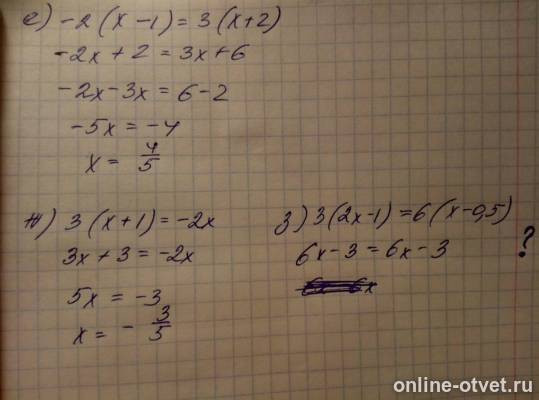 е) -2(x-1)=3(x+2)
-2x+2=3x+6
-2x-3x=6-2
-5x=-4
x= 4/5
ж) 3(x+1)=-2x
3x+3=-2x
5x=-3
x= - 3/5
з) 3(2x-1)=6(x-0,5)
6x-3=6x-3
?
6x 6x
online-otvet.ru